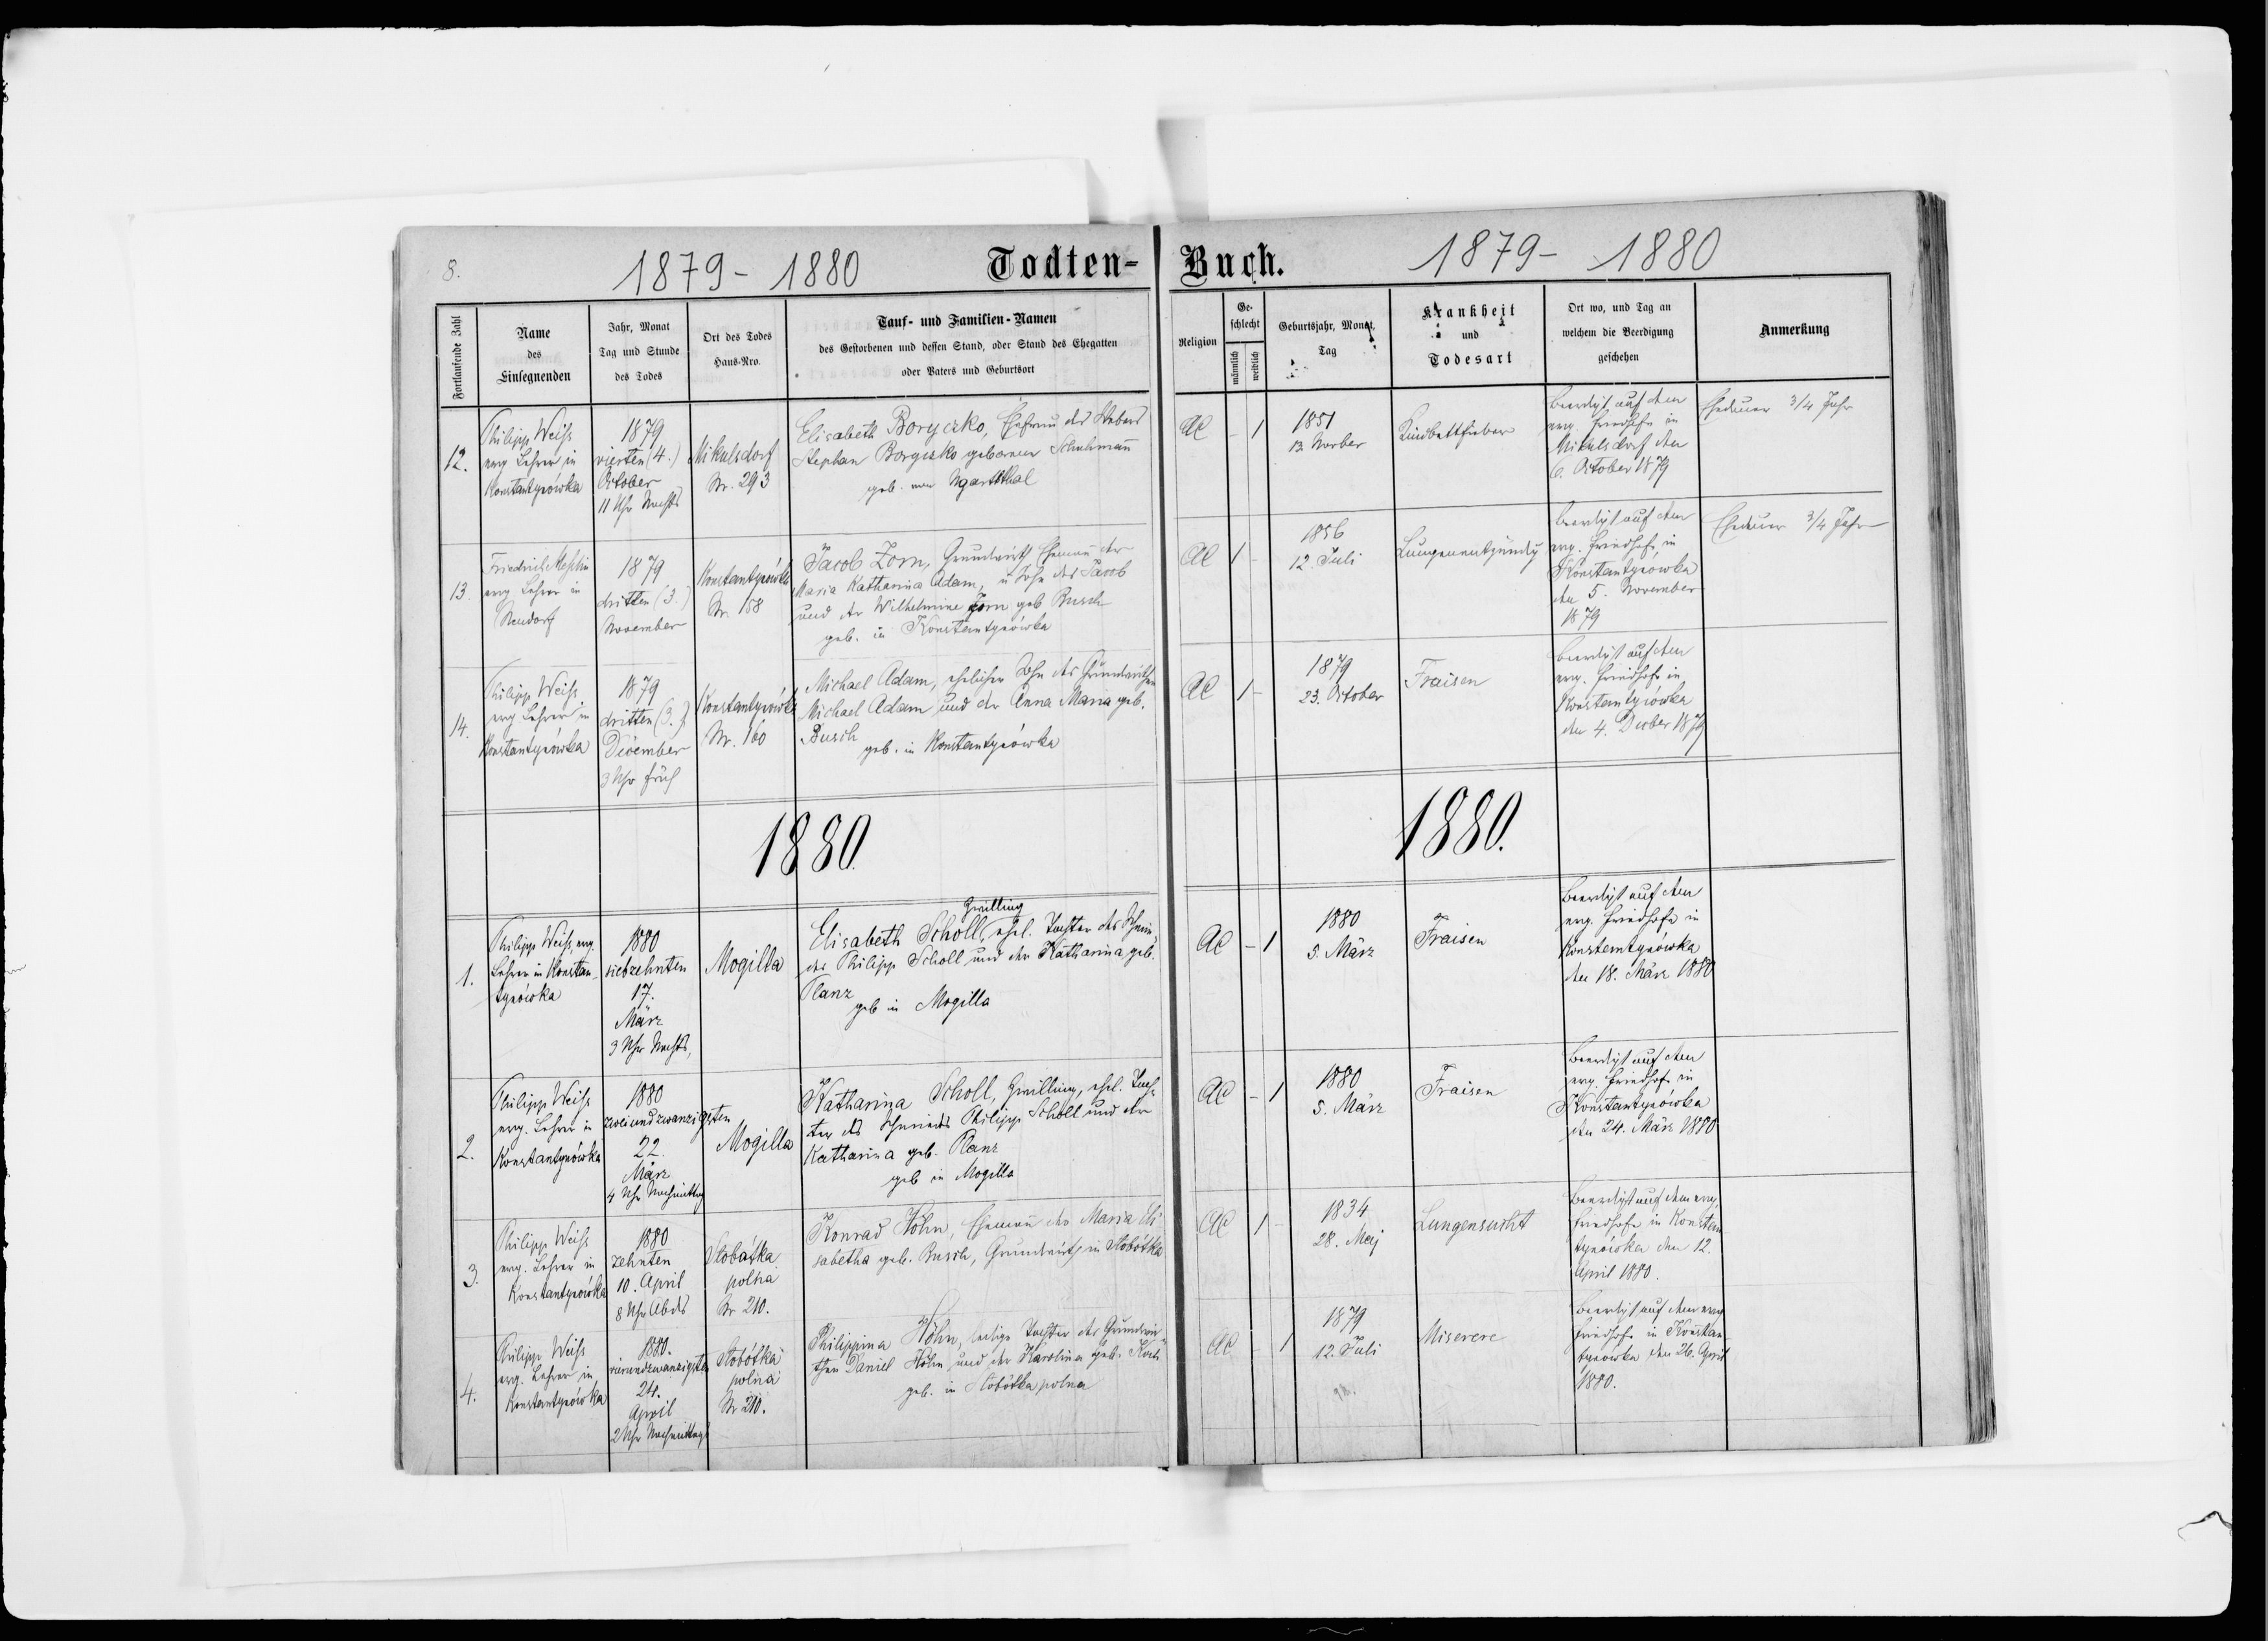 8.
1879 - 1880
Todten-
Buch.
1879 - 1880
Fortlaufende Zahl
Name
des
Einsegnenden
Jahr, Monat
Tag und Stunde
des Todes
Ort des Todes
Haus-Nro.
Tauf- und Familien-Namen
des Gestorbenen und dessen Stand, oder Stand des Ehegatten
oder Vaters und Geburtsort
Religion
Ge-
schlecht
männlich
weiblich
Geburtsjahr, Monat,
Tag
Krankheit
und
Todesart
Ort wo, und Tag an
welchem die Beerdigung
geschehen
Anmerkung
12.
Philipp Weiss
evg Lehrer in
Konstantynówka
1879
vierten (4.)
October
11 Uhr Nachts
Mikulsdorf
Nr. 293
Elisabeth Boryczko, Ehefrau des Webers
Stephan Boryczko geborene Schuhmann
geb. von Ugartsthal
AC
- 1
1851
13. Novber
Kindbettfieber
Beerdigt auf dem
evg. Friedhofe in
Mikulsdorf den
6. October 1879
Ehedauer 3/4 Jahr
13.
Friedrich
evg Lehrer in
Neudorf
1879
dritten (3.)
November
Konstantynówka
Nr. 158
Jacob Zorn, Grundwirth Eheman der
Maria Katharina Adam, u Sohn des Jacob
und der Wilhelmine Zorn geb Busch
geb. in Konstantynówka
AC
1 -
1856
12. Juli
Lungenentzündg
Beerdigt auf dem
evg. Friedhofe in
Konstantynówka
den 5. November
1879
Ehedauer 3/4 Jahr
14.
Philipp Weiss
evg Lehrer in
Konstantynówka
1879
dritten (3.)
December
3 Uhr früh
Konstantynówka
Nr. 160
Michael Adam, ehelicher Sohn des Grundwirthen
Michael Adam und der Anna Maria geb.
Busch
geb. in Konstantynówka
AC
1 -
1879
23. October
Fraisen
Beerdigt auf dem
evg. Friedhofe in
Konstantynówka
den 4. Decber 1879
1880.
1880.
1.
Philipp Weiss, evg.
Lehrer in Konstan-
tynówka
1880
siebzehnten
17.
März
3 Uhr Nachts,
Mogilla
Zwilling
Elisabeth Scholl, ehel. Tochter des Schmie-
des Philipp Scholl und der Katharina, geb.
Planz
geb in Mogilla
AC
- 1
1880
5. März
Fraisen
Beerdigt auf dem
evg. Friedhofe in
Konstantynówka
den 18. März 1880
2.
Philipp Weiss
evg. Lehrer in
Konstantynówka
1880
zweiundzwanzigsten
22.
März
4 Uhr Nachmittag
Mogilla
Katharina Scholl, Zwilling, ehel. Toch-
ter des Schmieds Philipp Scholl und der
Katharina geb. Planz
geb in Mogilla
AC
- 1
1880
5. März
Fraisen
Beerdigt auf dem
evg. Friedhofe in
Konstantynówka
den 24. März 1880
3.
Philipp Weiss
evg. Lehrer in
Konstantynówka
1880
zehnten
10. April
8 Uhr Abds
Slobótka
polna
Nr 210.
Konrad Höhn, Eheman der Maria Eli-
sabetha geb. Busch, Grundwirth in Slobótka
AC
1 -
1834
28. Mai
Lungensucht
Beerdigt auf dem evg.
Friedhofe in Konstan
tynówka den 12.
April 1880.
4.
Philipp Weiss
evg. Lehrer in
Konstantynówka
1880.
vierundzwanzigsten
24.
April
2 Uhr Nachmittags
Slobótka
polna
Nr 210.
Philippina Höhn, ledige Tochter des Grundwir-
then Daniel Höhn und der Karolina geb. Koch
geb. in Slobótka polna
AC
- 1
1879
12. Juli
Miserere
Beerdigt auf dem evg
Friedhofe in Konstan-
tynówka den 26. April
1880.